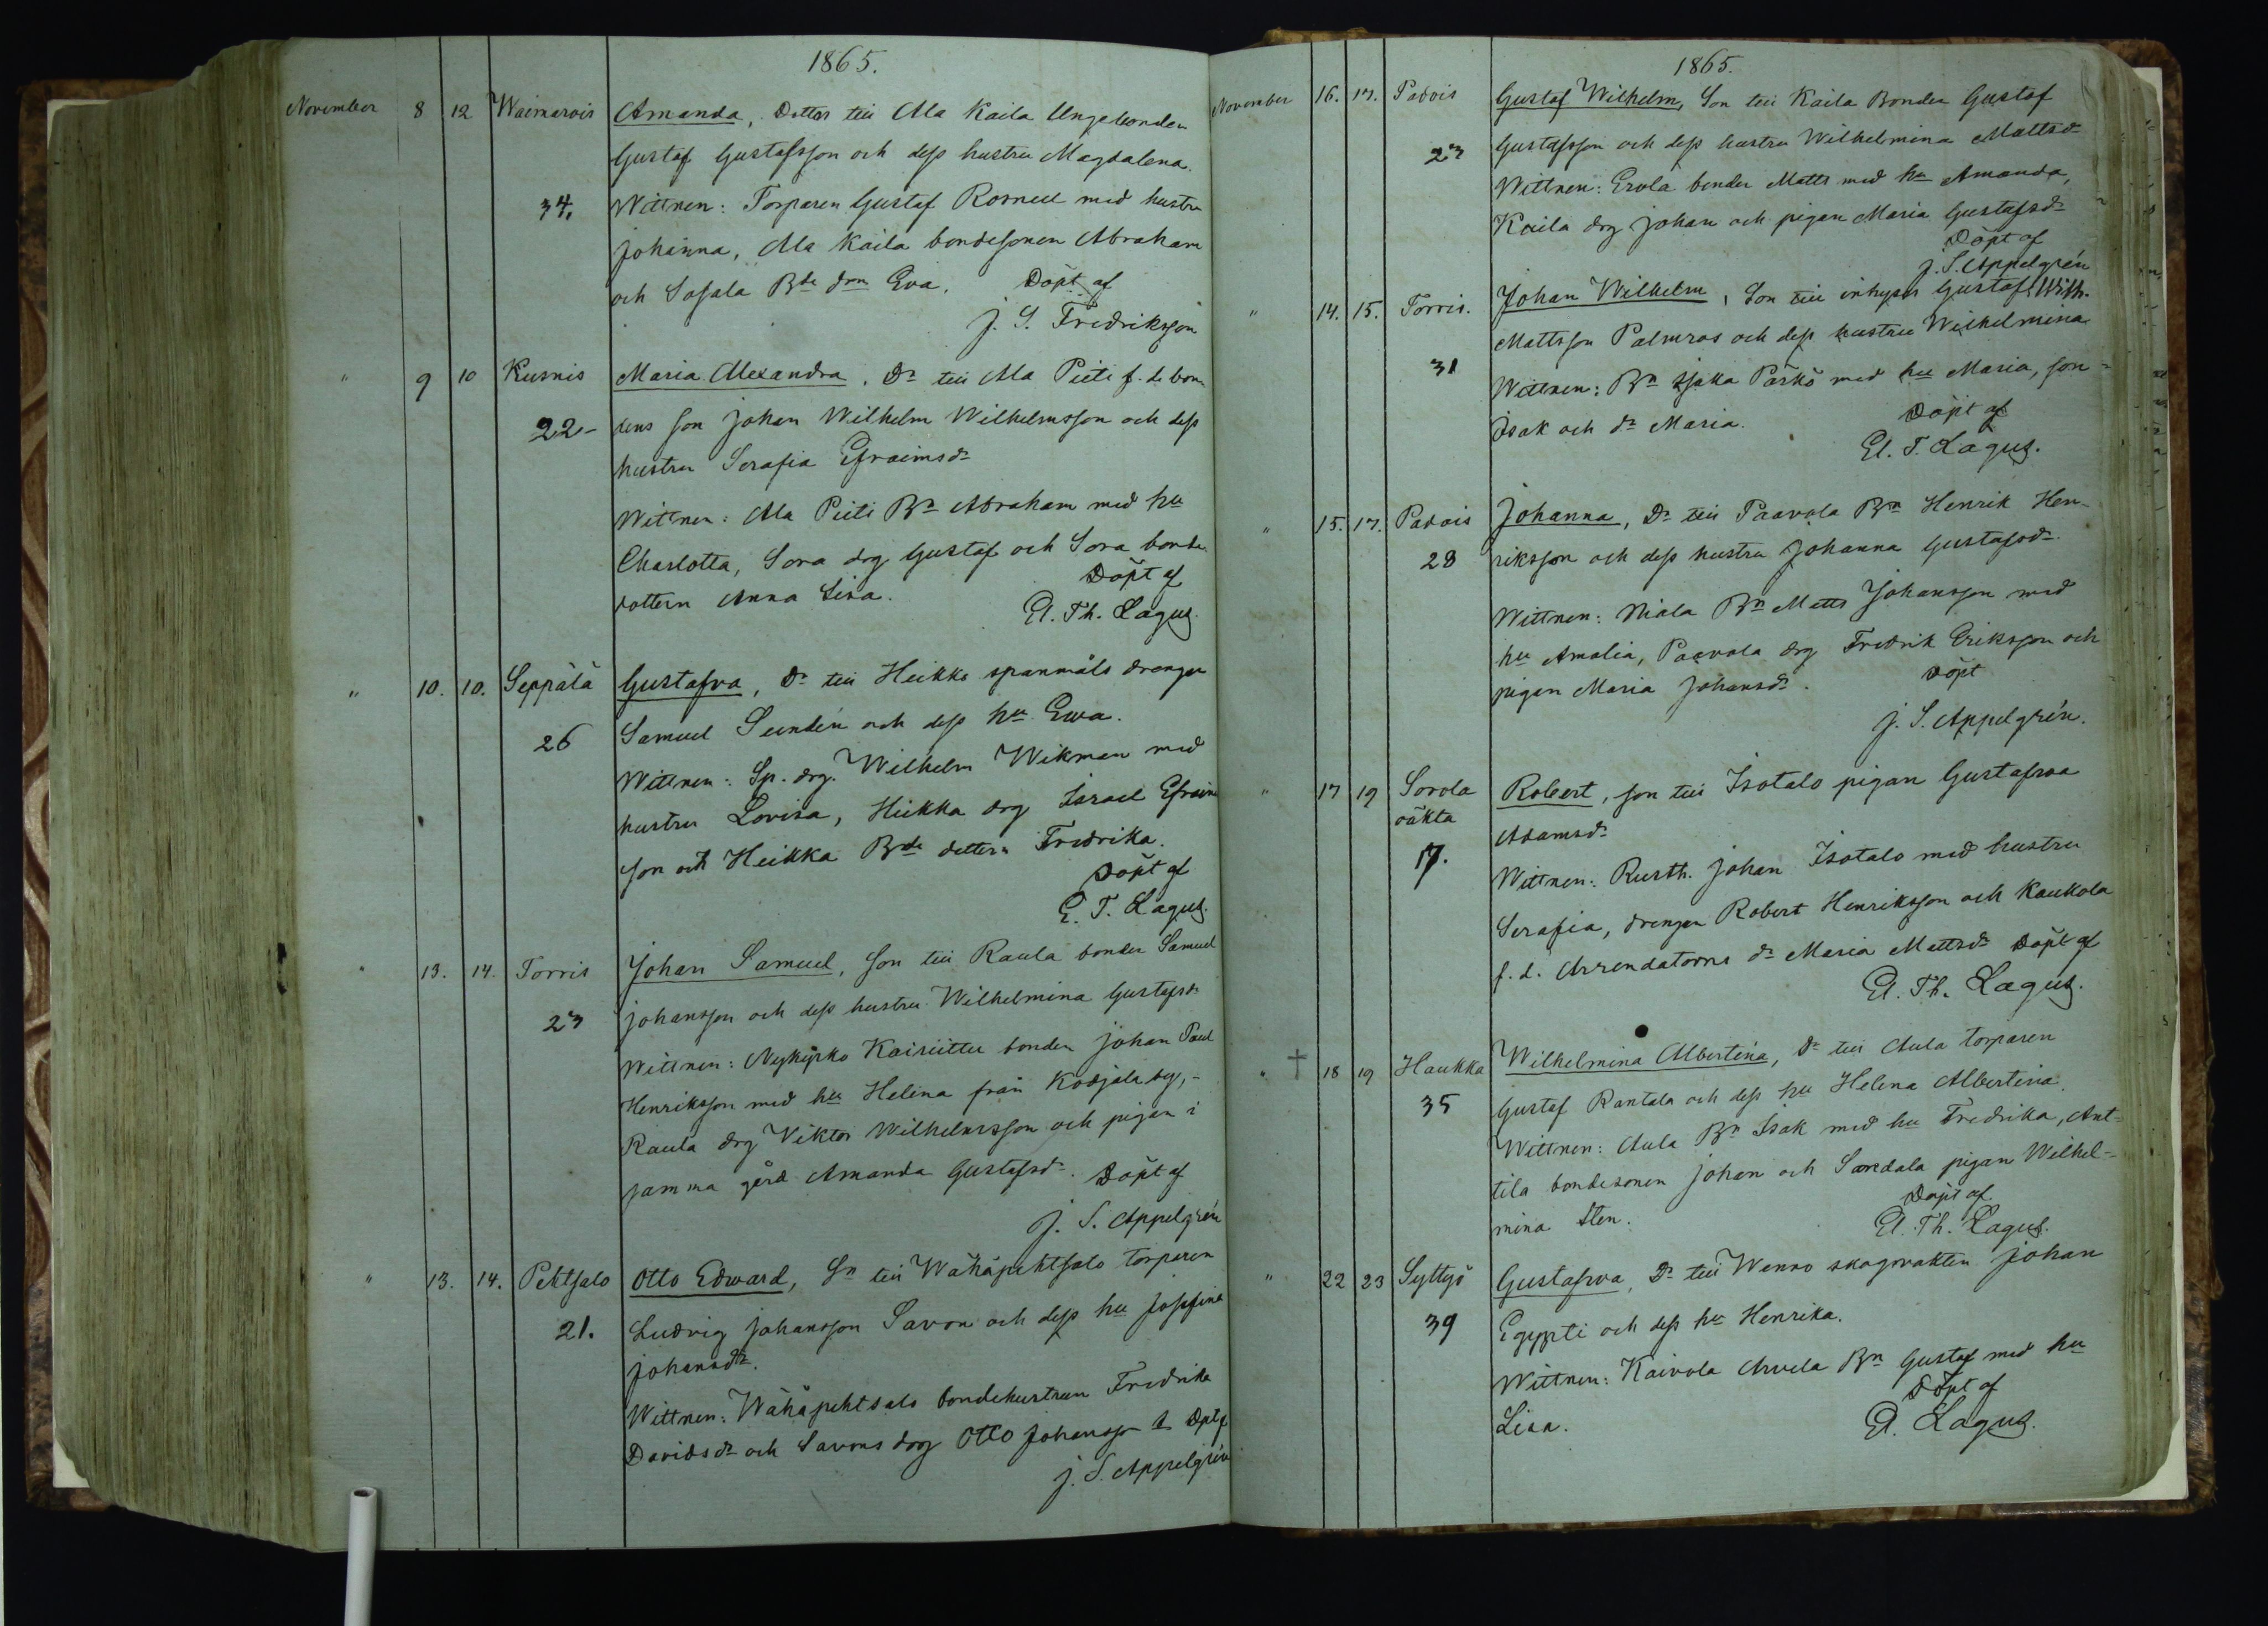 1865.
November 8 12 Waimarois Amanda, Dotter till Ala Kaila Ungebonden
Gustaf Gustafsson och dess hustru Magdalena.
34. Wittnen: Torparen Gustaf Rornell med hustru
Johanna, Ala Kaila bondesonen Abraham
och Sasala Bde drn Eva. Döpt af
J. S. Fredriksson
" 9 10 Kusnis Maria Alexandra, Dr till Ala Pieti f. d. bon-
22- dens son Johan Wilhelm Wilhelmsson och dess
hustru Serafia Efraimsdr
Wittnen: Ala Pieti Bn Abraham med hu
Charlotta, Sora drg Gustaf och Sora bonde
dottern Anna Lisa. Döpt af
El. Th. Lagus.
" 10. 10. Seppälä Gustafva, Dr till Heikka spanmåls drengen
26 Samuel Sundén och dess hu Ewa.
Wittnen: Sp. drg. Wilhelm Wikman med
hustru Lovisa, Heikka drg Israel Efraim
son och Heikka Bde dottern Fredrika.
Döpt af
E. T. Lagus.
" 13. 14. Torris Johan Samuel, son till Raula bonden Samuel
23 Johansson och dess hustru Wilhelmina Gustafsdr
Wittnen: Nykyrko Kairiittu bonden Johan Paul
Henriksson med hu Helena från Kodjala by, -
Raula drg Viktor Wilhelmsson och pigan i
samma gård Amanda Gustafsdr. Döpt af
J. S. Appelgrén
" 13. 14. Pehtsalo Otto Edward, Sn till Wähäpehtsalo torparen
21. Ludvig Johansson Savon och dess hu Josefina
Johansdtr.
Wittnen: Wähäpehtsalo bondehustrun Fredrika
Davidsdr och Savons drg Otto Johansson Dpt af
J. S. Appelgrén
1865.
November 16. 17. Padois Gustaf Wilhelm, Son till Kaila Bonden Gustaf
23 Gustafsson och dess hustru Wilhelmina Mattsdr
Wittnen: Erola bonden Matts med hu Amanda,
Kaila drg Johan och pigan Maria Gustafsdr
Döpt af
J. S. Appelgrén
" 14. 15. Torris. Johan Wilhelm, Son till inhyses Gustaf Wilh.
Mattsson Palmros och dess hustru Wilhelmina
31 Wittnen: Bn Isaka Pärkö med hu Maria, son =
Isak och dr Maria. Döpt af
El. T. Lagus.
" 15. 17. Padois Johanna, Dr till Paavola Bn Henrik Hen-
28 riksson och dess hustru Johanna Gustafsdr.
Wittnen: Niala Bn Matts Johansson med
hu Amalia, Paavola drg Fredrik Eriksson och
pigan Maria Johansdr. Döpt
J. S. Appelgrén.
" 17 19 Sorola Robert, son till Isotalo pigan Gustafva
oäkta Adamsdr
17. Wittnen: Rusth. Johan Isotalo med hustru
Serafia, drengen Robert Henriksson och Kaukola
f. d. Arrendatorns dr Maria Mattsdr Döpt af
El. Th. Lagus.
" † 18 19 Haukka Wilhelmina Albertina, Dr till Aula torparen
35 Gustaf Rantala och dess hu Helena Albertina.
Wittnen: Aula Bn Isak med hu Fredrika, Ant-
tila bondesonen Johan och Sandala pigan Wilhel-
mina Sten. Döpt af
El. Th. Lagus.
" 22 23 Syttyö Gustafva, Dr till Wenno skogvakten Johan
39 Egypti och dess hu Henrika.
Wittnen: Kaivola Arvela Bn Gustaf med hu
Lisa. Döpt af
El. Lagus.